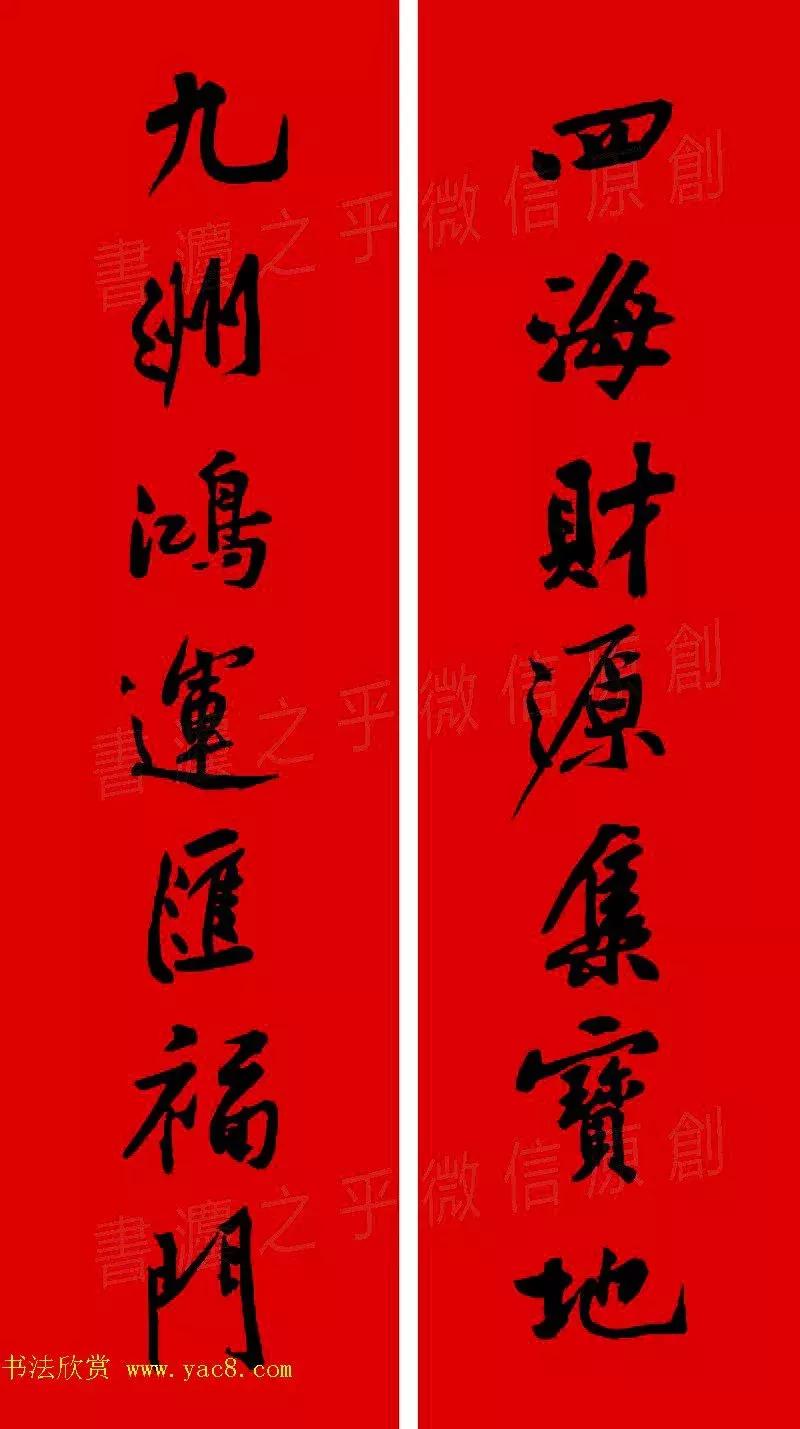 四海財源集寶地
九洲鴻運匯福門
書瀘之乎微信原創
書瀘之乎微信原創
書瀘之乎微信原創
书法欣赏 www.yac8.com